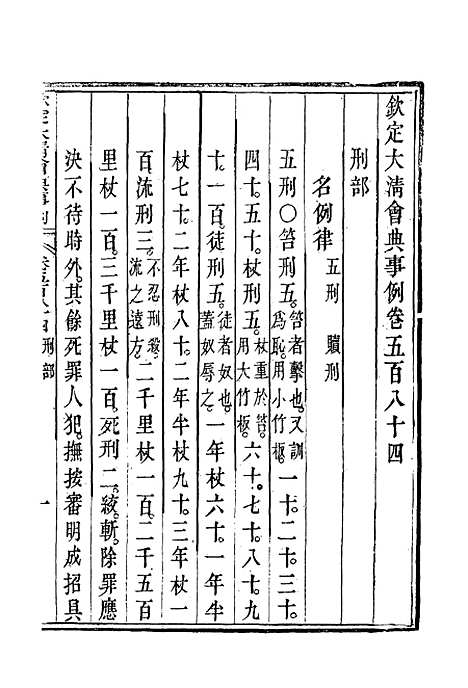 欽定大清會典事例卷五百八十四
刑部
名例律 五刑 贖刑
五刑〇笞刑五。笞者擊也。又訓爲恥。用小竹板。一十。二十。三十。
四十。五十。杖刑五。杖重於笞。用大竹板。六十。七十。八十。九
十。一百。徒刑五。徒者奴也。蓋奴辱之。一年杖六十。一年半
杖七十。二年杖八十。二年半杖九十。三年杖一
百。流刑三。不忍刑殺。流之遠方。二千里杖一百。二千五百
里杖一百。三千里杖一百。死刑二。絞。斬。除罪應
決不待時外。其餘死罪人犯。撫按審明成招具
刑部 一